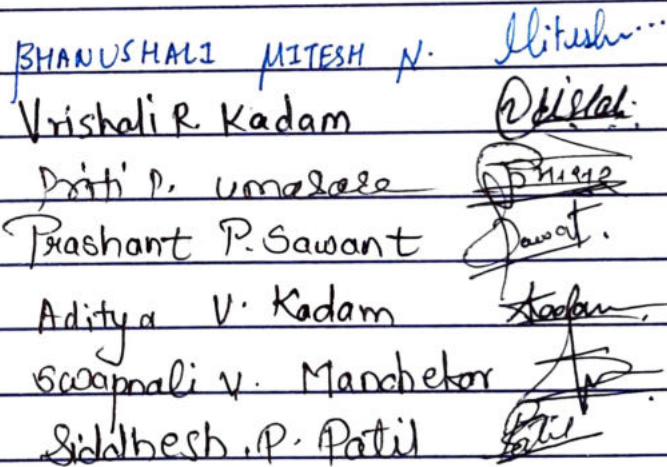 BHANUSHALI MITESH N. Mitesh...
Vrishali R. Kadam
Priti P. umarare
Prashant P. Sawant Sawat.
Aditya V. Kadam
Swapnali V. Manchekar
Siddhesh. P. Patil Patil